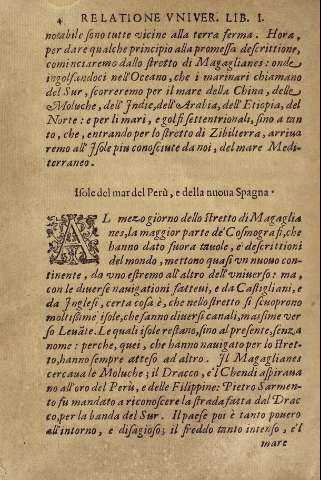 4 RELATIONE VNIVER. LIB. I.
notabile sono tutte vicine alla terra ferma. Hora,
per dare qualche principio alla promessa descrittione,
cominciaremo dallo stretto di Magaglianes: onde
ingolfandoci nell'Oceano, che i marinari chiamano
del Sur, scorreremo per il mare della China, delle
Moluche, dell'Indie, dell'Arabia, dell'Etiopia, del
Norte: e per li mari, e golfi settentrionali, sino a tan
to, che, entrando per lo stretto di Zibilterra, arriua
remo all'Isole piu conosciute da noi, del mare Medi-
terraneo.
Isole del mar del Perù, e della nuoua Spagna.
AL mezo giorno dello stretto di Magaglia
nes, la maggior parte de' Cosmografi, che
hanno dato fuora tauole, e descrittioni
del mondo, mettono quasi vn nuouo con-
tinente, da vno estremo all'altro dell'vniuerso: ma,
con le diuerse nauigationi fatteui, e da Castigliani, e
da Inglesi, certa cosa è, che nello stretto si scuoprono
moltissime isole, che fanno diuersi canali, massime ver
so Leuãte. Le quali isole restano, sino al presente, senza
nome: perche, quei, che hanno nauigato per lo stret-
to, hanno sempre atteso ad altro. Il Magaglianes
cercaua le Moluche; il Dracco, e'l Chendi aspiraua
no all'oro del Perù, e delle Filippine: Pietro Sarmen-
to fu mandato a riconoscere la strada fatta dal Drac
co, per la banda del Sur. Il paese poi è tanto pouero
all'intorno, e disagioso; il freddo tanto intenso, e'l
mare